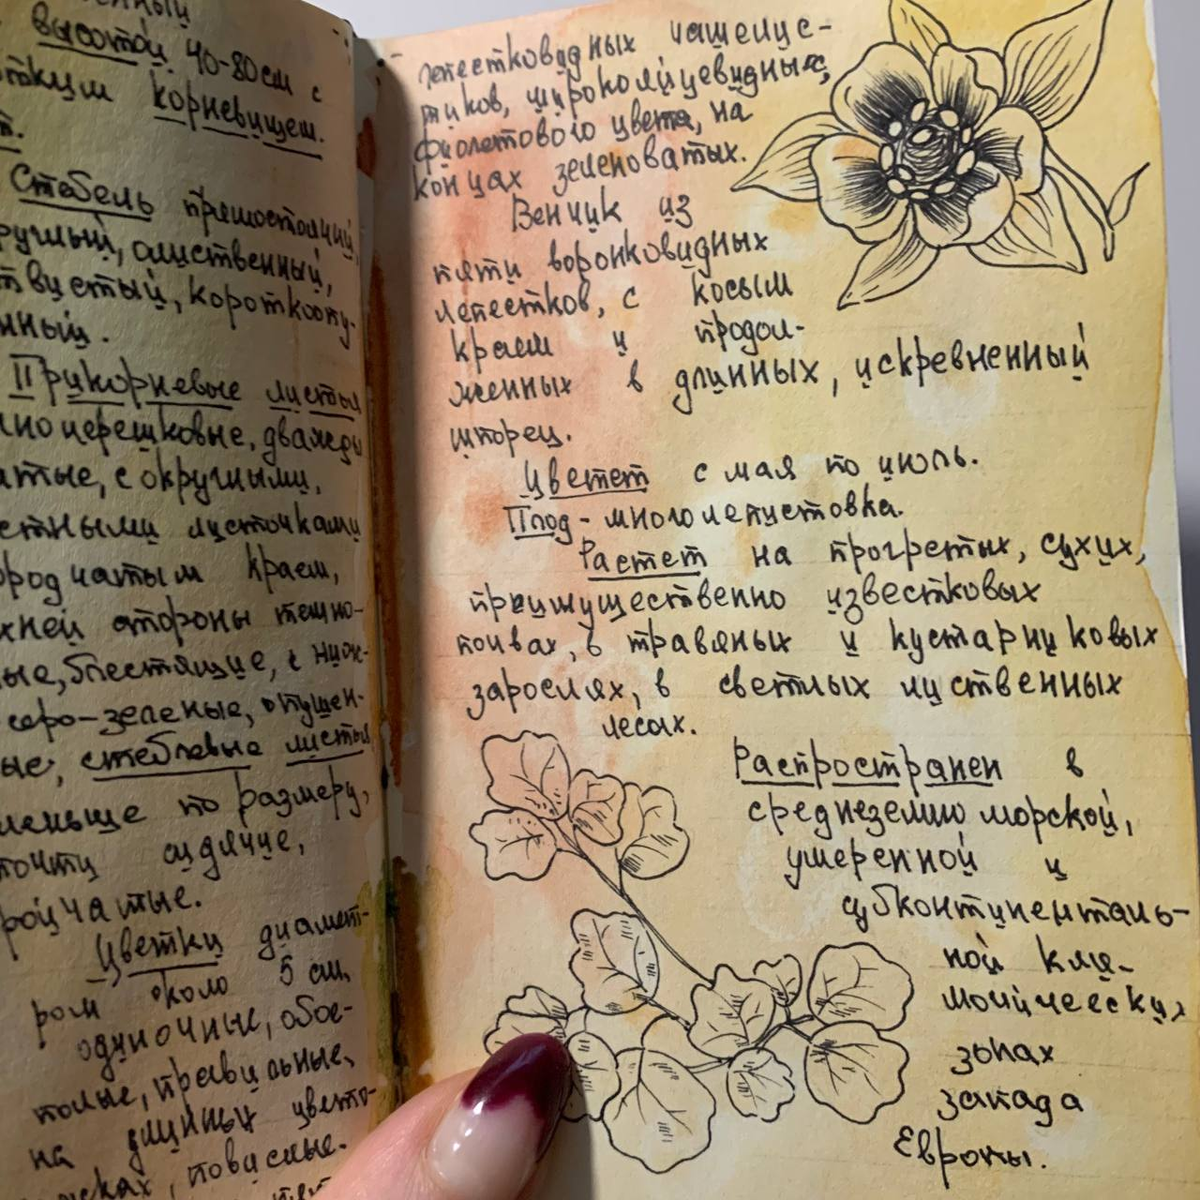 высотой 40-80 см с
корневищем.
Стебель прямостоячий,
олиственный,
короткоопу-
Прикорневые листья
дважды
с округлыми,
листочками
краем,
стороны темно-
блестящие, с ниж-
серо-зеленые, опушен-
ые, стеблевые листья
меньше по размеру,
почти сидячие,
Цветки диамет-
ром около 5 см,
одиночные, обое-
полые, правильные,
на длинных цвето-
повислые.
лепестковидных чашелис-
тиков, широколйцевидных,
фиолетового цвета, на
концах зеленоватых.
Венчик из
пяти воронковидных
лепестков, с косым
краем и продол-
женных в длинных, искревненный
шпорец.
Цветет с мая по июль.
Плод - многолепустовка.
Растет на прогретых, сухих,
преимущественно известковых
почвах, в травяных и кустарниковых
зарослях, в светлых лиственных
лесах.
Распространен в
средиземноморской,
умеренной и
субконтиненталь-
ной кли-
матических
зонах
запада
Европы.